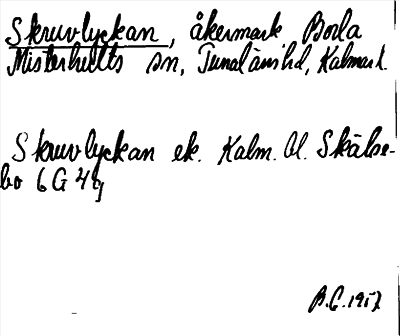 Skruvlyckan, åkermark, Borla
Misterhults sn, Tunaläns hd, Kalmar l.
Skruvlyckan ek. Kalm. bl. Skälse-
bo 6G 4g
B.G. 1957